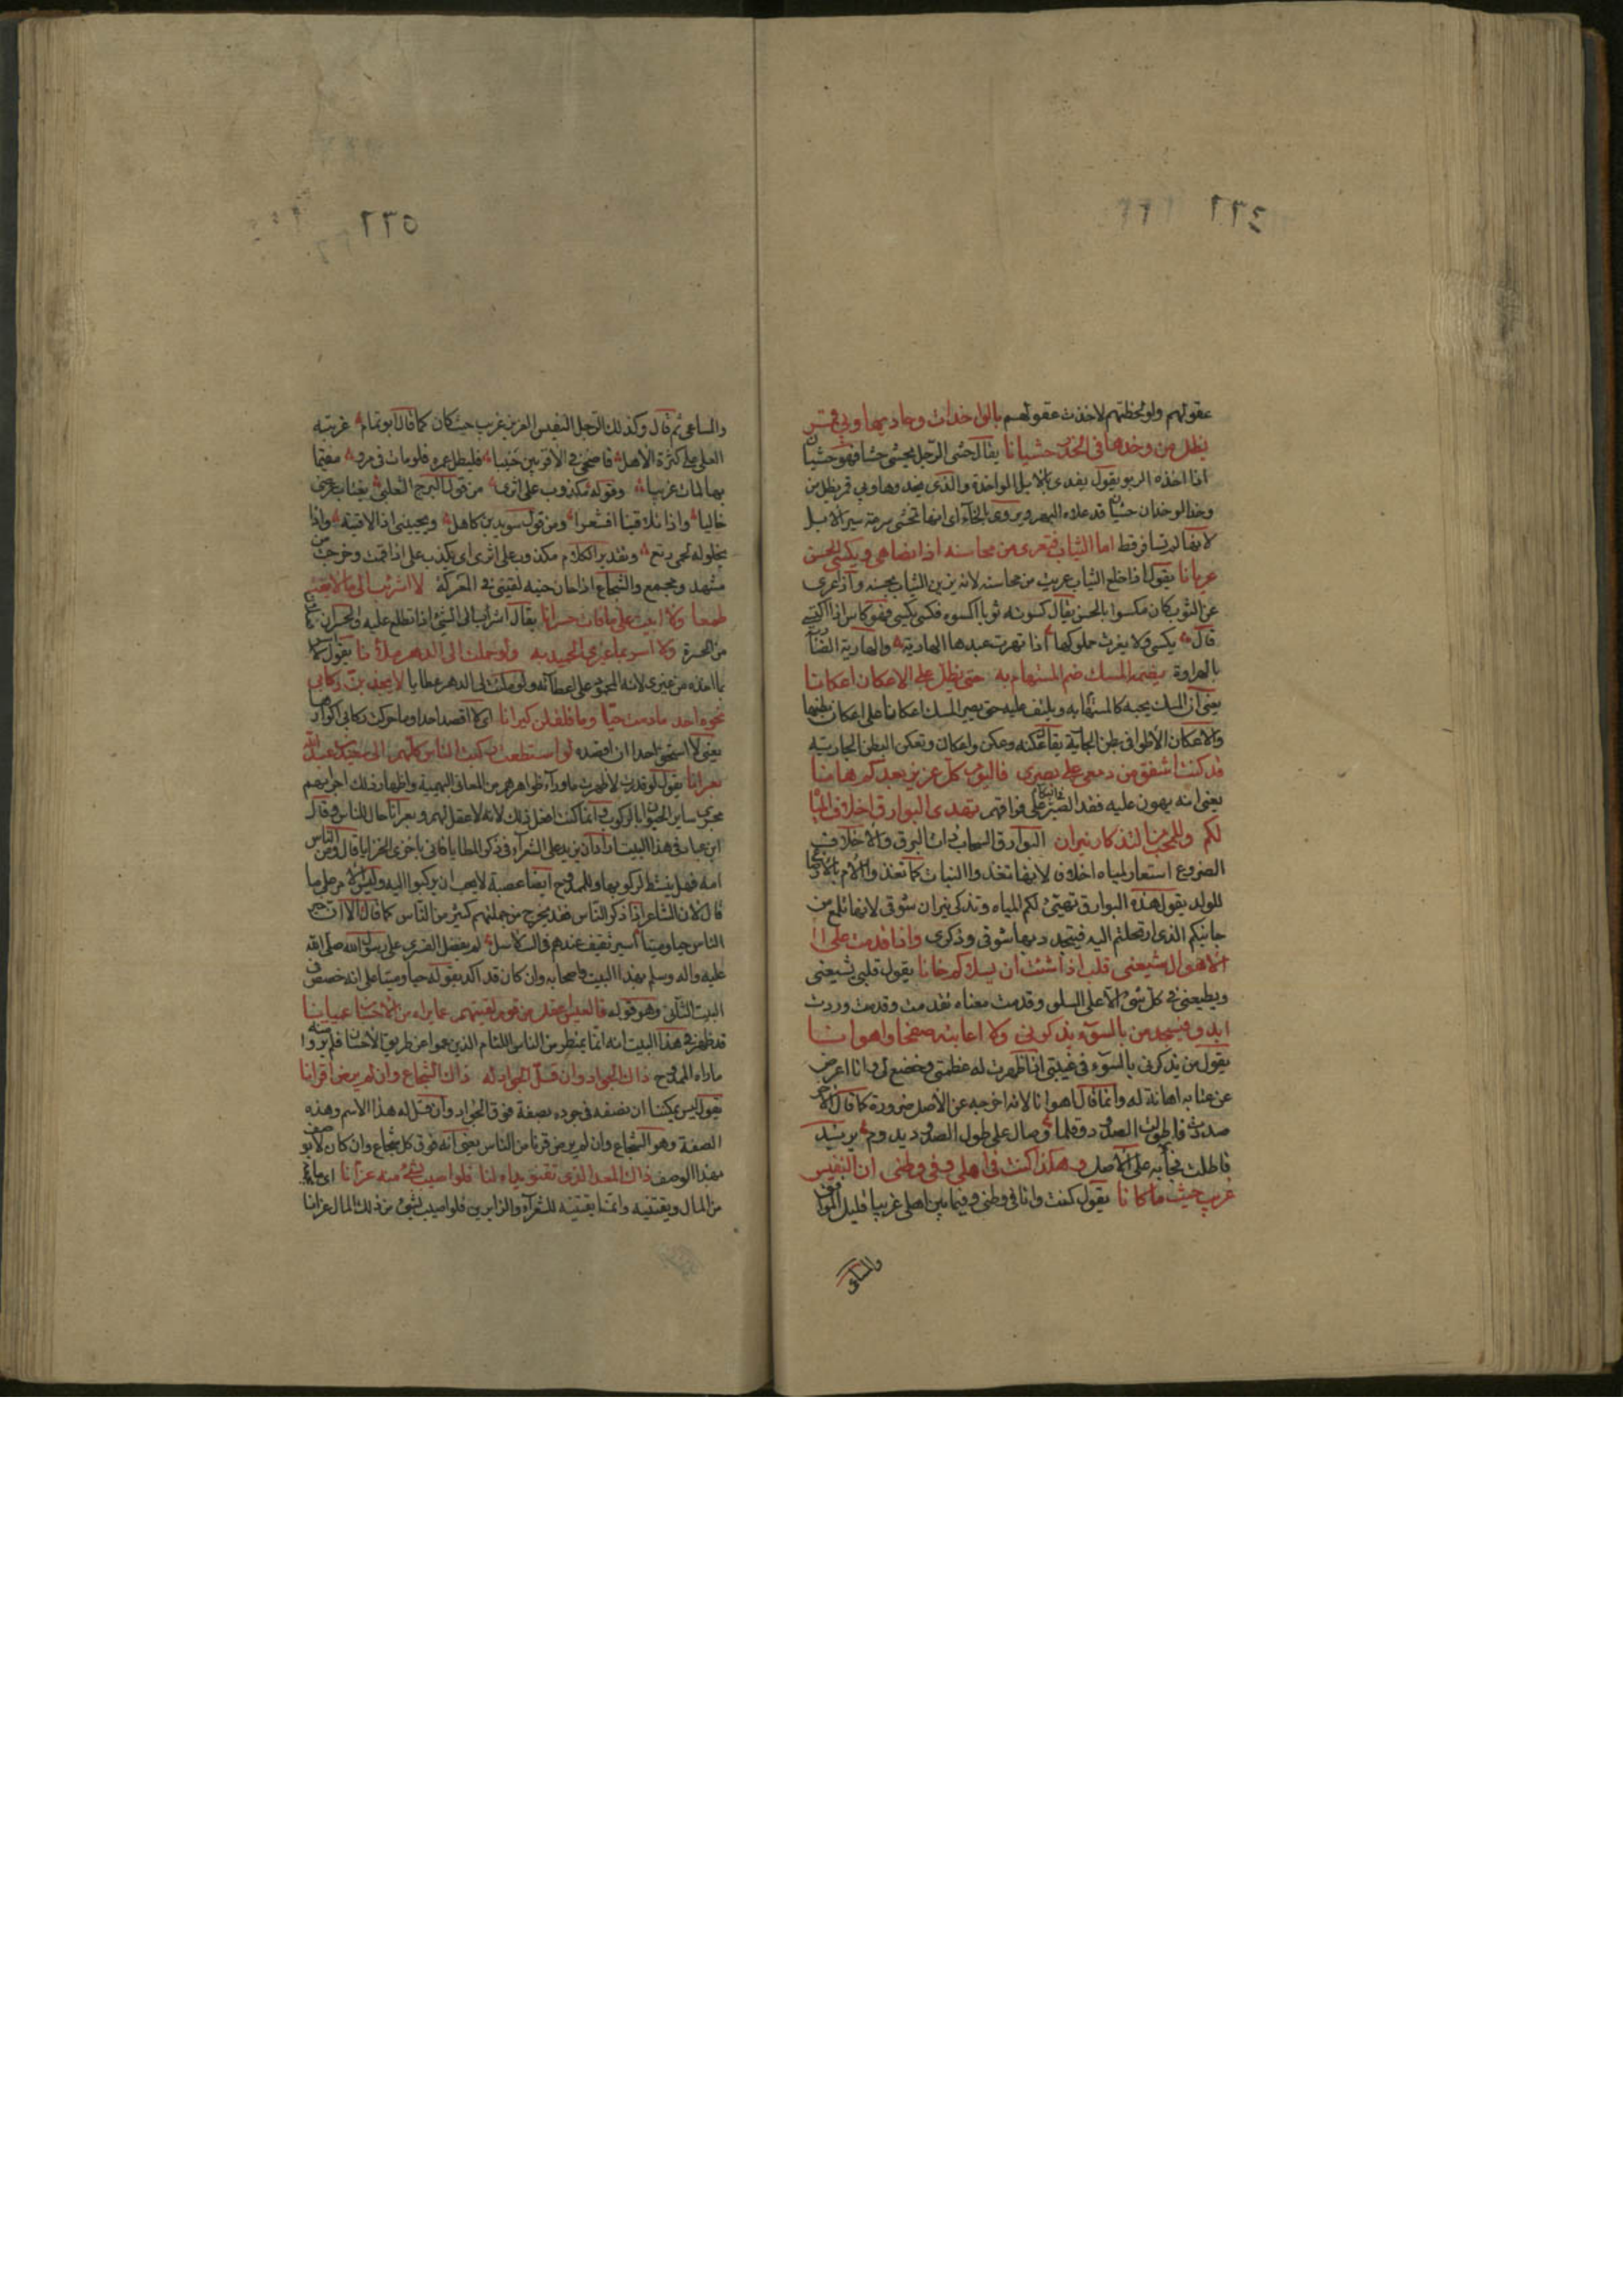 ٢٢٤
عقولهم ولو لحظتهم لاخذت عقولهم بالواخدات وحاديها وبي قمر
يظل من وخدها في الخدر حشيانا يقال حشى الرجل يحشى حشا فهو حشيان
اذا اخذه الربو يقول يفدى بالابل الواخدة والذي يحدوها وبي قمر يظل من
وخد الوخدان حشيان قد علاه البهر ويروى بالخاء اى انها تخشى سرعة سير الابل
لانها لم تسافر قط اما الثياب فتعرى من محاسنه اذا نضاها ويكسى الحسن
عريانا يقول اذا خلع الثياب عريت من محاسنه لانه يزين الثياب بحسنه واذا عرى
عن الثوب كان مكسوا بالحسن يقال كسوته ثوبا اكسوه فكسى يكسى فهو كاس اذا اكتسى
قال يكسى ولا يغرث مملوكها اذا تهرت عبدها الهارية والهارية
بالهراوة يضمه المسك ضم المستهام به حتى يظل على الاعكان اعكانا
يعنى ان المسك يحبه كالمستهام به ويلتف عليه حتى يصير المسك اعكانا على اعكان بطنها
والاعكان الاطواء في بطن الجارية يقال عكنة وعكن واعكان وتعكن البطن الجارية
قد كنت اشفق من دمعى على بصرى فاليوم كل عزيز بعدكم هانا
يعنى انه يهون عليه فقد البصر على فراقهم تهدى البوارق اخلاف المياه
لكم وللمحب من التذكار نيران البوارق السحاب ذات البرق والاخلاف
الضروع استعار لمياه اخلاف لانها تغذوا النبات كما تغذوا الام بالارضاع
للولد يقول هذه البوارق تهيئ لكم المياه وتذكى نيران شوقى لانها تلمع من
جانبكم الذى ارتحلتم اليه فيتجدد بها شوقى وذكرى واذا قدمت على
الاهوال شيعنى قلب اذا شئت ان يسلاكم خانا يقول قلبى يشيعنى
ويطيعنى في كل شئ الا على السلو وقدمت معناه تقدمت وقدمت وردت
ابدو فيسجد من بالسوء يذكرنى ولا اعاتبه صفحا واهوانا
يقول من يذكرنى بالسوء في غيبتى اذا ظهرت له عظمنى وخضع لى وانا اعرض
عن عتابه اهانة له وانما قال اهوانا لانه اخرجه عن الاصل ضرورة كما قال الاخر
صددت فاطولت الصدود وقلما وصال على طول الصدود يدوم يريد
فاطلت فجاء به على الاصل وهكذا كنت في اهلى وفي وطنى ان النفيس
غريب حيث ما كانا يقول كنت وانا في وطنى وفيما بين اهلى غريبا قليل الموافق
والمساعى
٢٢٥
والمساعى ثم قال وكذلك الرجل النفيس العزيز غريب حيث كان كما قال ابو تمام غربته
العلى على كثرة الاهل فاضحى في الاقربين جنيبا فليطل عمره فلو مات في مرو مقيما
بها لمات غريبا وقوله مكذوب على اثرى من قول البرج الثعلبى يغتاب عرضى
خاليا واذا تلاقينا اقشعرا ومن قول سويد بن كاهل ويحيينى اذا لاقيته واذا
يخلوله لحمى رتع وتقدير الكلام مكذوب على اثرى اى يكذب على اذا قمت وخرجت من
مشهد ومجمع والشجاع اذا حان حينه لقينى في المعركة لا اشرئب الى ما لم يفت
طمعا ولا ابيت على ما فات حسرانا يقال اشرأب الى الشئ اذا تطلع عليه والحسران
من الحسرة ولا اسر بما غيرى الحميد به ولو حملت الى الدهر ملآنا يقول لا
بما اخذه من غيرى لانه المحمود على اعطائه ولو ملئ الى الدهر عطايا لا يجذبن ركابى
نحوه احد ما دمت حيا وما قلقلن كيرانا اى لا اقصد احدا وما حركت ركابى اكوارها
يعنى لا استحق احدا ان اقصده لو استطعت ركبت الناس كلهم الى سعيد بن عبد الله
بعرانا يقول لو قدرت لاظهرت ما وراء ظواهرهم من المعانى البهيمية واظهار ذلك اجراؤهم
مجرى ساير الحيوان بالركوب انما كنت افعل ذلك لانه لا عقل لهم وبعرانا حال للناس وقال
ابن عباد في هذا البيت اراد ان يزيد على الشعراء في ذكر المطايا فاتى باخزى الخزايا قال ومن الناس
امه فهل ينشط لركوبها وللممدوح ايضا عصبة لا يحب ان يركبوا اليه وليس الامر على ما
قال لان الشاعر اذا ذكر الناس فقد يخرج من جملتهم كثير من الناس كما قال الا ان خير
الناس حيا وميتا اسير ثقيف عندهم في السلاسل لم يفضل القسرى على رسول الله صلى الله
عليه واله وسلم بهذا البيت واصحابه وان كان قد اكد بقوله حيا وميتا على انه خصص في
البيت الثانى وهو قوله فالعيس اعقل من قوم لقيتهم عما يراه من الاحسان عميانا
قد ظهر في هذا البيت انه انما يمتطى من الناس اللئام الذين عموا عن طريق الاحسان فلم يروا منه
ما راه الممدوح ذاك الجواد وان قل الجواد له ذاك الشجاع وان لم يرض اقرانا
يقول ليس يمكننا ان نصفه في جوده بصفة فوق الجواد وان قل له هذا الاسم وهذه
الصفة وهو الشجاع وان لم يرض قرنا من الناس يعنى انه فوق كل شجاع وان كان لا يوصف
بهذا الوصف ذاك المعد الذى تقنو يداه لنا فلو اصيب بشئ منه عزانا اى ما
من المال ويقتنيه وانما يقتنيه للشعراء والزايرين فلو اصيب بشئ من ذلك المال عزانا